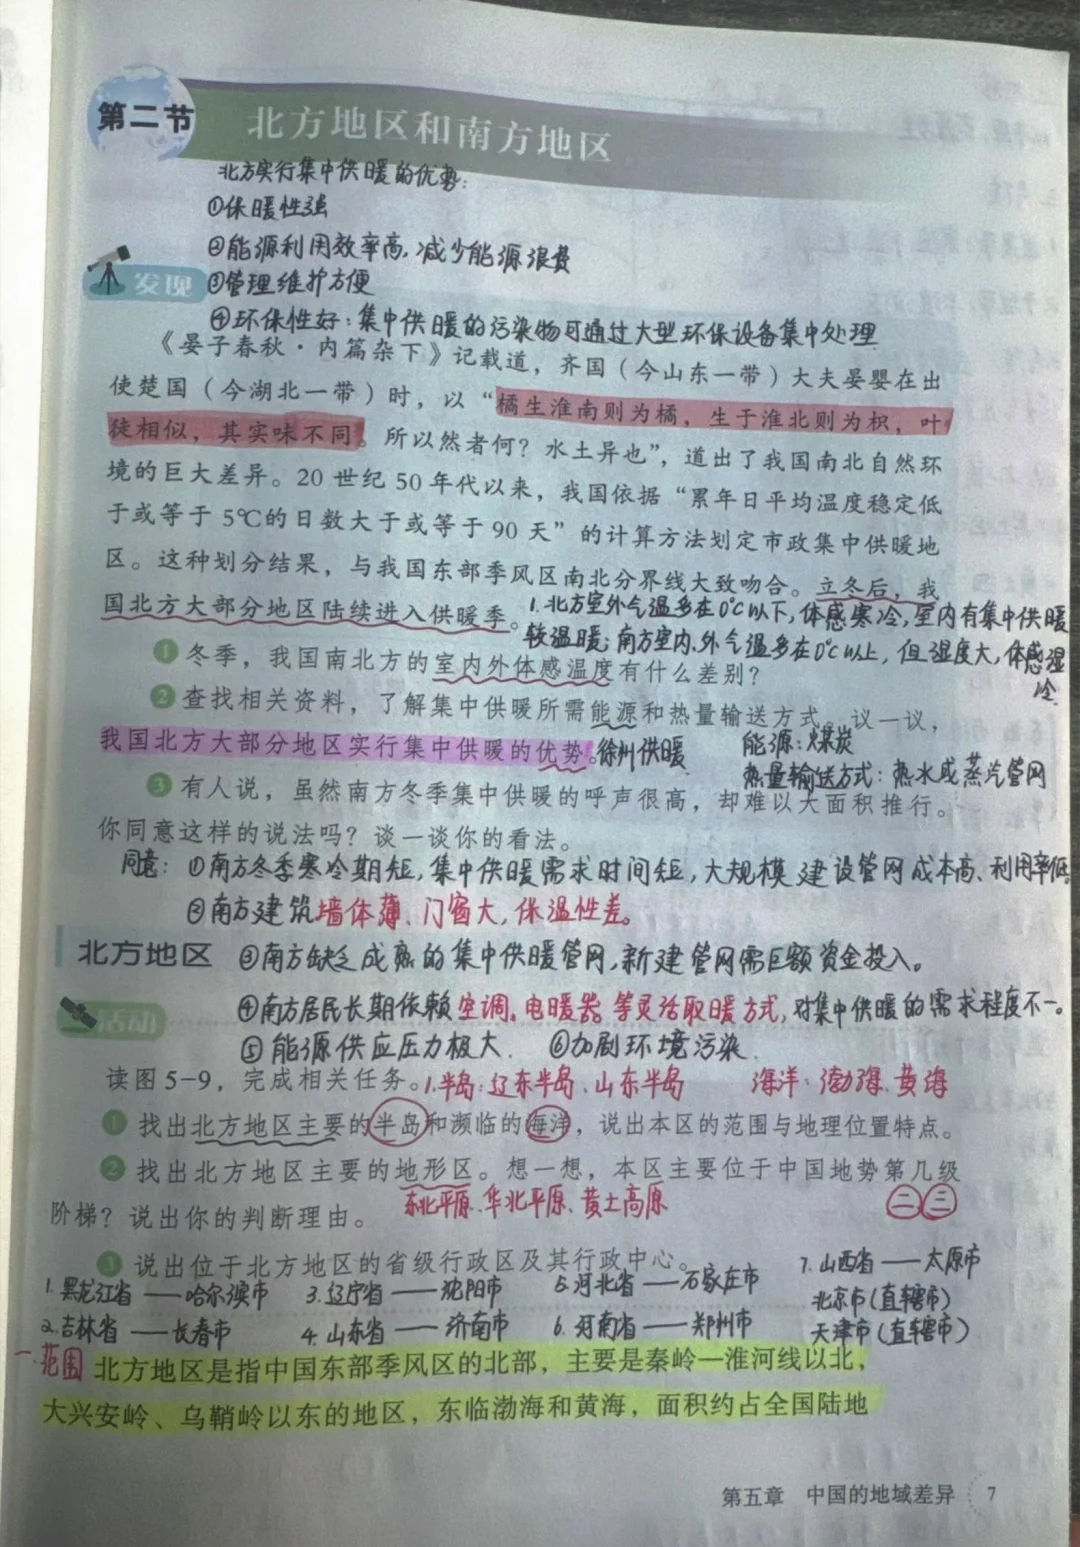 第二节 北方地区和南方地区
北方实行集中供暖的优势:
①保暖性强
②能源利用效率高,减少能源浪费
发现 ③管理维护方便
④环保性好:集中供暖的污染物可通过大型环保设备集中处理
《晏子春秋·内篇杂下》记载道，齐国（今山东一带）大夫晏婴在出
使楚国（今湖北一带）时，以“橘生淮南则为橘，生于淮北则为枳，叶
徒相似，其实味不同。所以然者何？水土异也”，道出了我国南北自然环
境的巨大差异。20世纪50年代以来，我国依据“累年日平均温度稳定低
于或等于5℃的日数大于或等于90天”的计算方法划定市政集中供暖地
区。这种划分结果，与我国东部季风区南北分界线大致吻合。立冬后，我
国北方大部分地区陆续进入供暖季。
1.北方室外气温多在0℃以下,体感寒冷,室内有集中供暖
较温暖;南方室内、外气温多在0℃以上,但湿度大,体感湿
冷.
1 冬季，我国南北方的室内外体感温度有什么差别？
2 查找相关资料，了解集中供暖所需能源和热量输送方式。议一议，
我国北方大部分地区实行集中供暖的优势。徐州供暖 能源:煤炭
热量输送方式:热水或蒸汽管网
3 有人说，虽然南方冬季集中供暖的呼声很高，却难以大面积推行。
你同意这样的说法吗？谈一谈你的看法。
同意: ①南方冬季寒冷期短,集中供暖需求时间短,大规模建设管网成本高、利用率低。
②南方建筑墙体薄、门窗大,保温性差。
北方地区 ③南方缺乏成熟的集中供暖管网,新建管网需巨额资金投入。
活动 ④南方居民长期依赖空调、电暖器等灵活取暖方式,对集中供暖的需求程度不一。
⑤能源供应压力极大. ⑥加剧环境污染.
读图5-9，完成相关任务。1.半岛:辽东半岛、山东半岛 海洋:渤海、黄海
1 找出北方地区主要的半岛和濒临的海洋，说出本区的范围与地理位置特点。
2 找出北方地区主要的地形区。想一想，本区主要位于中国地势第几级
阶梯？说出你的判断理由。 东北平原、华北平原、黄土高原 二 三
3 说出位于北方地区的省级行政区及其行政中心。 7.山西省——太原市
1.黑龙江省——哈尔滨市 3.辽宁省——沈阳市 5.河北省——石家庄市 北京市(直辖市)
2.吉林省——长春市 4.山东省——济南市 6.河南省——郑州市 天津市(直辖市)
一.范围 北方地区是指中国东部季风区的北部，主要是秦岭—淮河线以北，
大兴安岭、乌鞘岭以东的地区，东临渤海和黄海，面积约占全国陆地
第五章 中国的地域差异 7